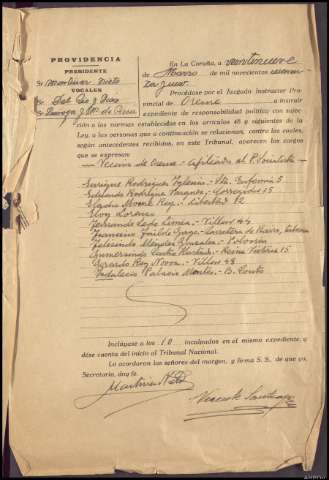 PROVIDENCIA
PRESIDENTE
Sr Martinez Nieto
VOCALES
Sr Del Rio y Diaz
En La Coruña, a veintinueve
de Marzo de mil novecientos cuaren
ta y uno.
Procédase por el Juzgado Instructor Pro-
vincial de Orense a instruir
expediente de responsabilidad política con suje-
ción a las normas establecidas en los artículos 45 y siguientes de la
Ley, a las personas que a continuación se relacionan, contra las cuales,
según antecedentes recibidos, en este Tribunal, aparecen los cargos
que se expresan:
Vecinos de Orense - afiliados al P. Socialista
Enrique Rodriguez Iglesias - Sta. Eufemia 5
Rodriguez - Corregidor 15
Eladio Rey - Libertad 12
Eloy Lorenzo
Fernando - Villar 44
Francisco - Carretera de
Mendez Gonzalez - Polvorin
Castro - Reina Victoria 15
Gerardo Rey Novoa - Villar 48
Indalecio - B. Couto
Inclúyase a los 10 inculpados en el mismo expediente, y
dése cuenta del inicio al Tribunal Nacional.
Lo acordaron los señores del margen, y firma S. S. de que yo,
Secretario, doy fe.
Martinez Nieto
Vicente Santiago